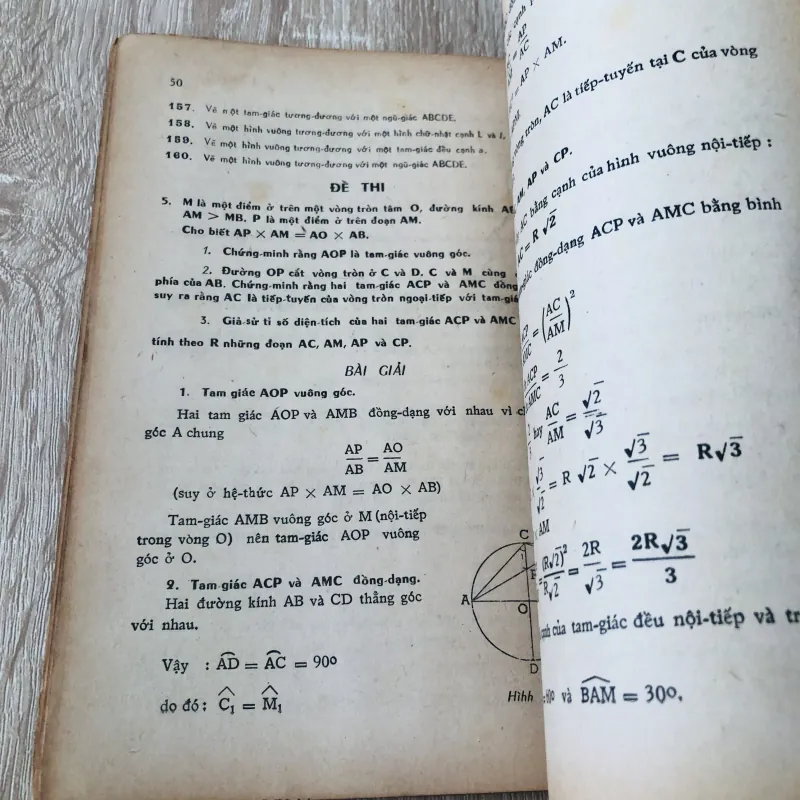 50
157. Vẽ một tam-giác tương-đương với một ngũ-giác ABCDE.
158. Vẽ một hình vuông tương-đương với một hình chữ-nhật cạnh L và l.
159. Vẽ một hình vuông tương-đương với một tam-giác đều cạnh a.
160. Vẽ một hình vuông tương-đương với một ngũ-giác ABCDE.
ĐỀ THI
5. M là một điểm ở trên một vòng tròn tâm O, đường kính
AM > MB. P là một điểm ở trên đoạn AM.
Cho biết AP × AM = AO × AB.
1. Chứng-minh rằng AOP là tam-giác vuông góc.
2. Đường OP cắt vòng tròn ở C và D. C và M cùng
phía của AB. Chứng-minh rằng hai tam-giác ACP và AMC đồng
suy ra rằng AC là tiếp-tuyến của vòng tròn ngoại-tiếp với
3. Giả-sử tỉ số diện-tích của hai tam-giác ACP và AMC
tính theo R những đoạn AC, AM, AP và CP.
BÀI GIẢI
1. Tam giác AOP vuông góc.
Hai tam giác AOP và AMB đồng-dạng với nhau vì
góc A chung
AP/AB = AO/AM
(suy ở hệ-thức AP × AM = AO × AB)
Tam-giác AMB vuông góc ở M (nội-tiếp
trong vòng O) nên tam-giác AOP vuông
góc ở O.
2. Tam-giác ACP và AMC đồng-dạng.
Hai đường kính AB và CD thẳng góc
với nhau.
Vậy : AD = AC = 90º
do đó : C₁ = M₁
C
1
A
O
D
Hình
AP
AC
= AP × AM.
tròn, AC là tiếp-tuyến tại C của vòng
AM, AP và CP.
AC bằng cạnh của hình vuông nội-tiếp :
AC = R √2
đồng-dạng ACP và AMC bằng bình
= (AC/AM)²
= 2/3
hay AC/AM = √2/√3
= R √2 × √3/√2 = R√3
× AM
= (R√2)²/R√2 = 2R/√3 = 2R√3/3
cạnh của tam-giác đều nội-tiếp và
và BAM = 30º.